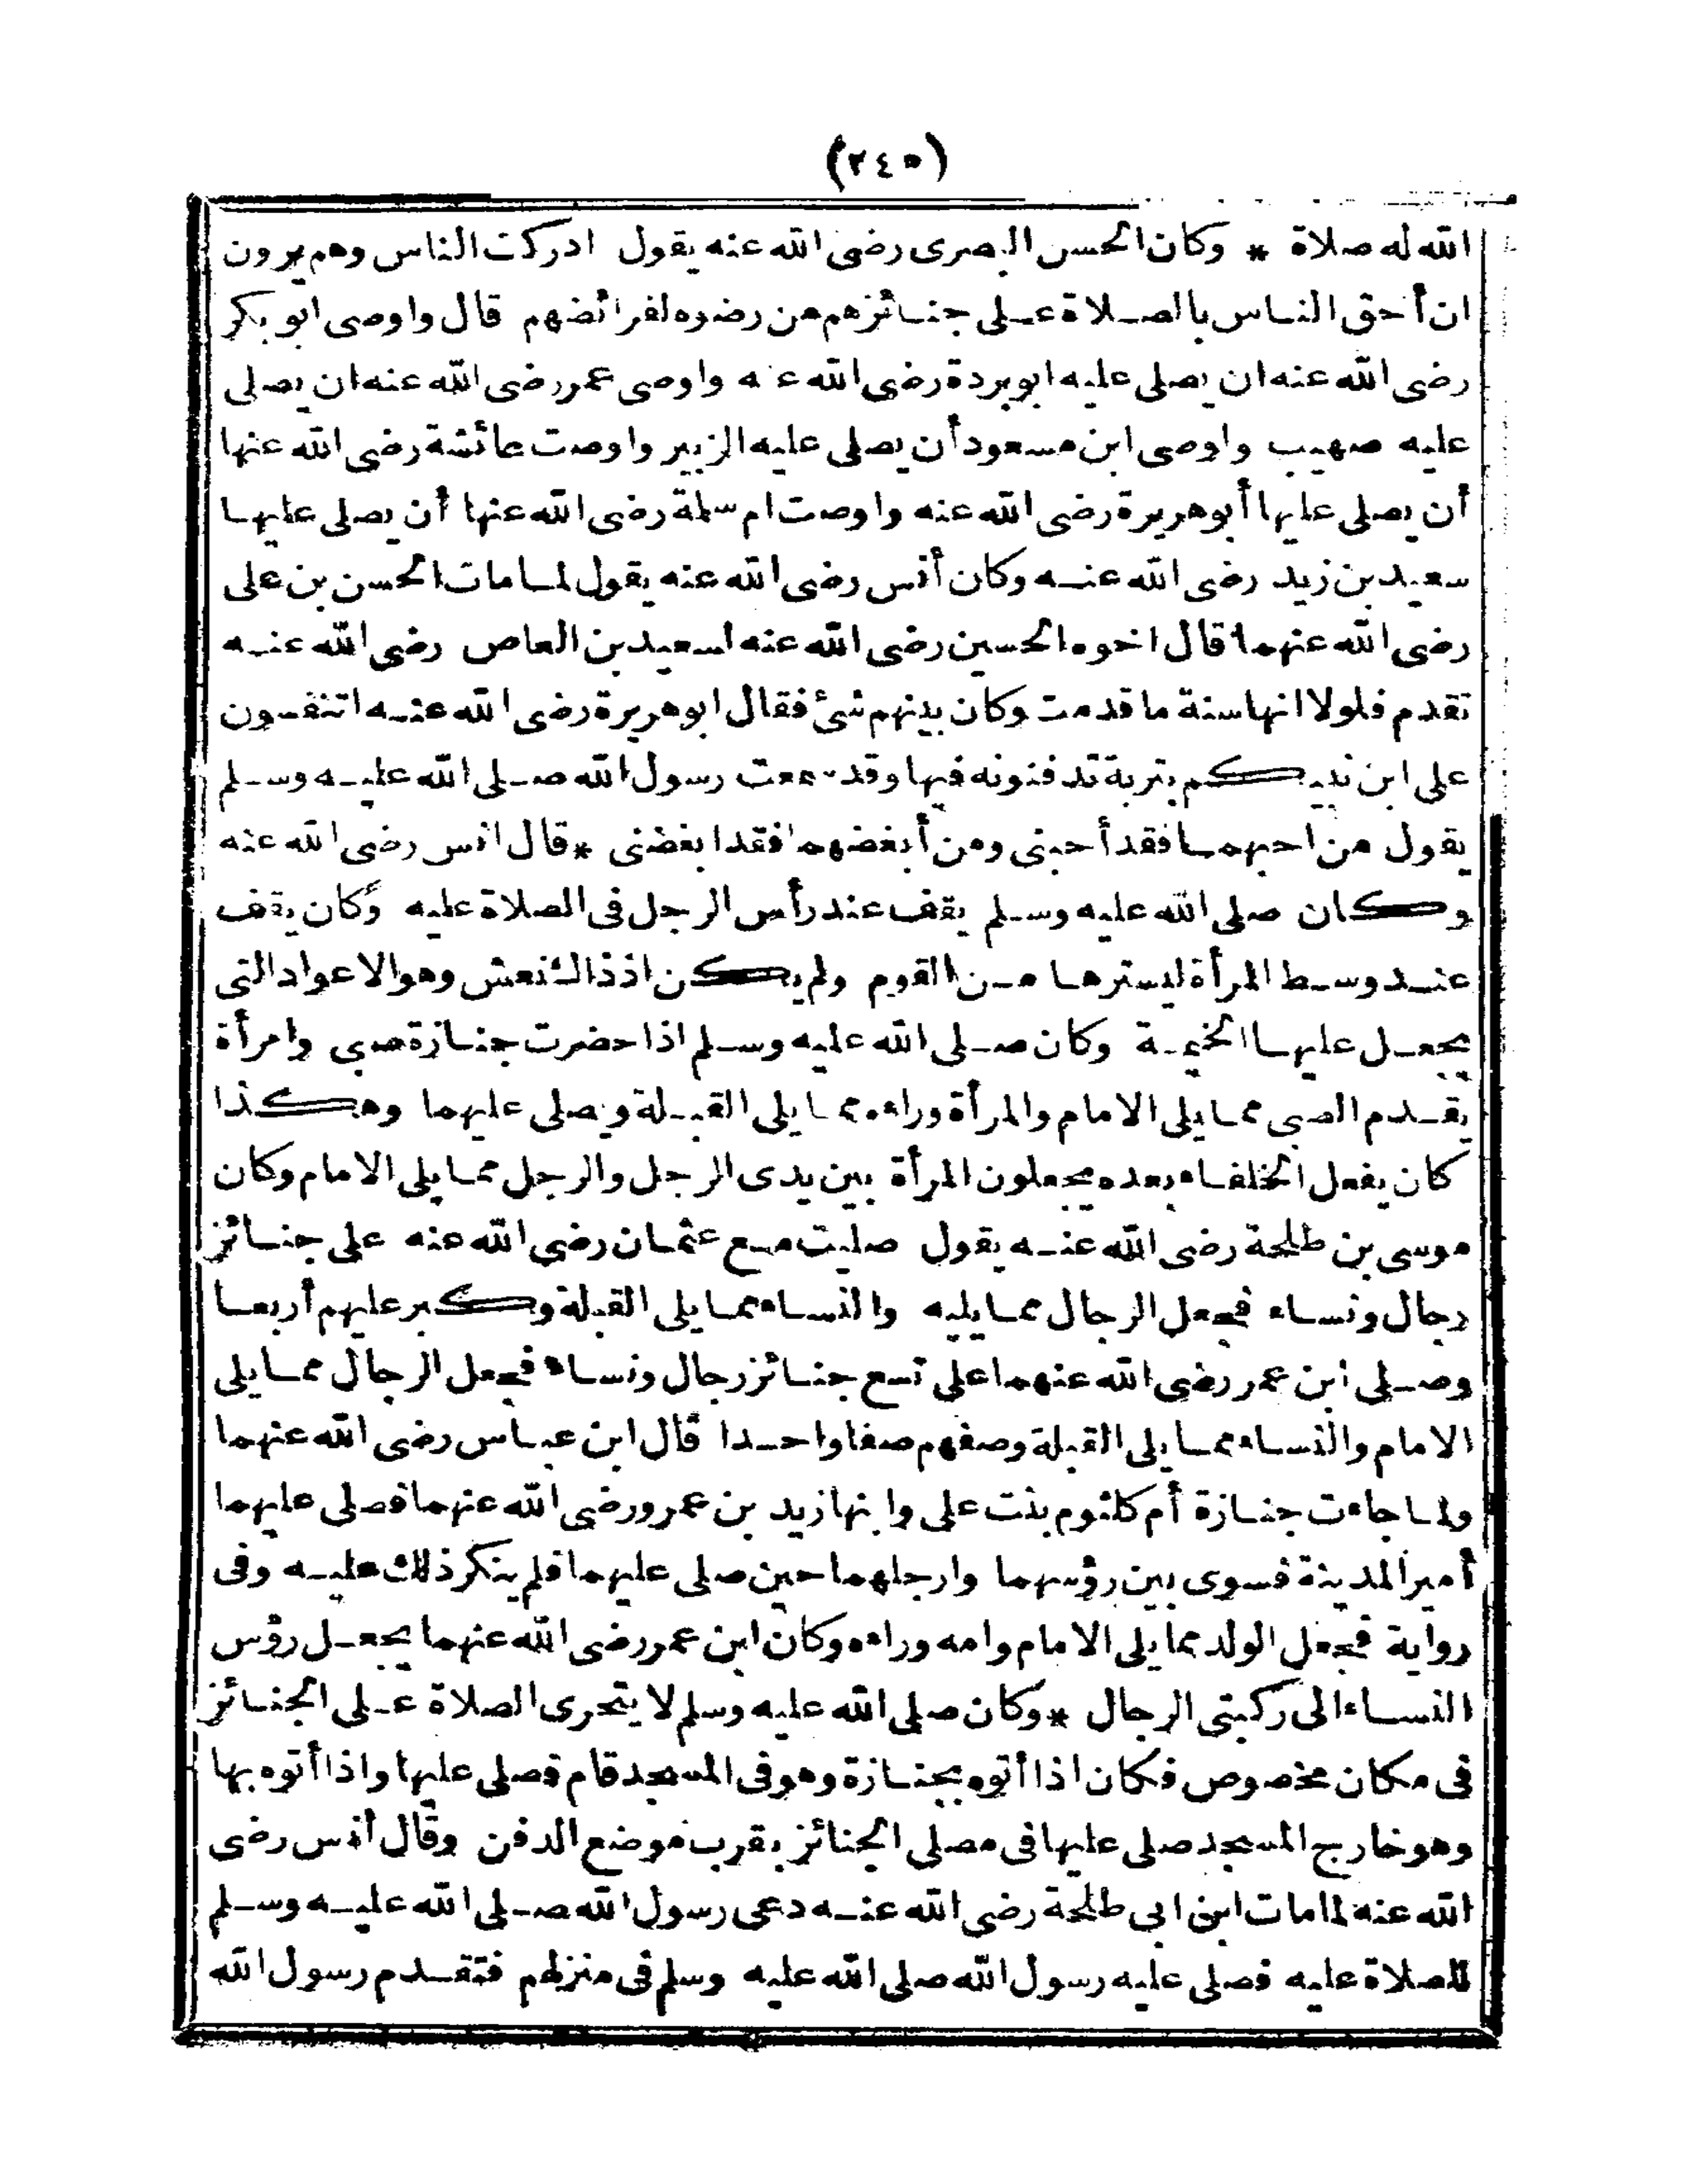 (٢٤٥)
الله له صلاة * وكان الحسن البصرى رضى الله عنه يقول ادركت الناس وهم يرون
ان أحق الناس بالصلاة على جنائزهم من رضوه لفرائضهم قال واوصى ابو بكر
رضى الله عنه ان يصلى عليه ابو بردة رضى الله عنه واوصى عمر رضى الله عنه ان يصلى
عليه صهيب واوصى ابن مسعود أن يصلى عليه الزبير واوصت عائشة رضى الله عنها
أن يصلى عليها أبو هريرة رضى الله عنه واوصت ام سلمة رضى الله عنها أن يصلى عليها
سعيد بن زيد رضى الله عنه وكان أنس رضى الله عنه يقول لما مات الحسن بن على
رضى الله عنهما قال اخوه الحسين رضى الله عنه لسعيد بن العاص رضى الله عنه
تقدم فلولا انها سنة ما قدمت وكان بينهم شئ فقال ابو هريرة رضى الله عنه اتنفسون
على ابن نبيكم بتربة تدفنونه فيها وقد سمعت رسول الله صلى الله عليه وسلم
يقول من احبهما فقد أحبنى ومن أبغضهما فقد ابغضنى * قال انس رضى الله عنه
وكان صلى الله عليه وسلم يقف عند رأس الرجل فى الصلاة عليه وكان يقف
عند وسط المرأة ليسترها من القوم ولم يكن اذ ذاك نعش وهو الاعواد التى
يجعل عليها الخيمة وكان صلى الله عليه وسلم اذا حضرت جنازة صبى وامرأة
يقدم الصبى مما يلى الامام والمرأة وراءه مما يلى القبلة ويصلى عليهما وهكذا
كان يفعل الخلفاء بعده يجعلون المرأة بين يدى الرجل والرجل مما يلى الامام وكان
موسى بن طلحة رضى الله عنه يقول صليت مع عثمان رضى الله عنه على جنائز
رجال ونساء فجعل الرجال مما يليه والنساء مما يلى القبلة وكبر عليهم أربعا
وصلى ابن عمر رضى الله عنهما على تسع جنائز رجال ونساء فجعل الرجال مما يلى
الامام والنساء مما يلى القبلة وصفهم صفا واحدا قال ابن عباس رضى الله عنهما
ولما جاءت جنازة أم كلثوم بنت على وابنها زيد بن عمر ورضى الله عنهما فصلى عليهما
أمير المدينة فسوى بين رؤسهما وارجلهما حين صلى عليهما فلم ينكر ذلك عليه وفى
رواية فجعل الولد مما يلى الامام وامه وراءه وكان ابن عمر رضى الله عنهما يجعل رؤس
النساء الى ركبتى الرجال * وكان صلى الله عليه وسلم لا يتحرى الصلاة على الجنائز
فى مكان مخصوص فكان اذا أتوه بجنازة وهو فى المسجد قام فصلى عليها واذا أتوه بها
وهو خارج المسجد صلى عليها فى مصلى الجنائز بقرب موضع الدفن وقال أنس رضى
الله عنه لما مات ابن ابى طلحة رضى الله عنه دعى رسول الله صلى الله عليه وسلم
للصلاة عليه فصلى عليه رسول الله صلى الله عليه وسلم فى منزلهم فتقدم رسول الله